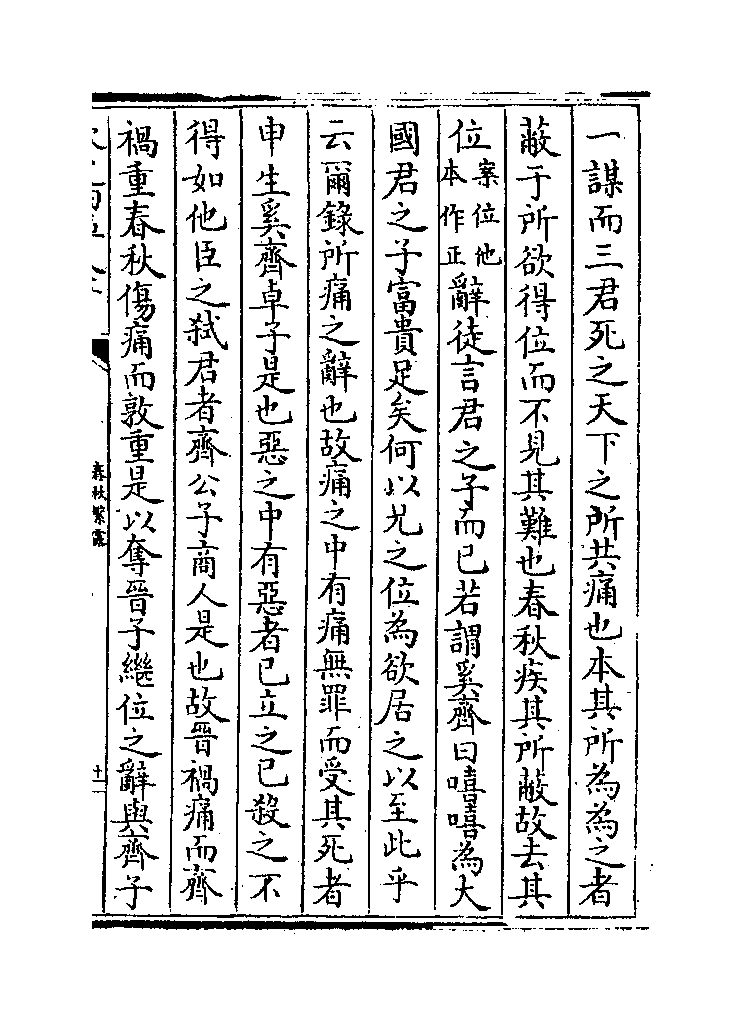 一謀而三君死之天下之所共痛也本其所為為之者
蔽于所欲得位而不見其難也春秋疾其所蔽故去其
位案位他本作正辭徒言君之子而已若謂奚齊曰嘻嘻為大
國君之子富貴足矣何以兄之位為欲居之以至此乎
云爾錄所痛之辭也故痛之中有痛無罪而受其死者
申生奚齊卓子是也惡之中有惡者已立之已殺之不
得如他臣之弑君者齊公子商人是也故晉禍痛而齊
禍重春秋傷痛而敦重是以奪晉子繼位之辭與齊子
春秋繁露